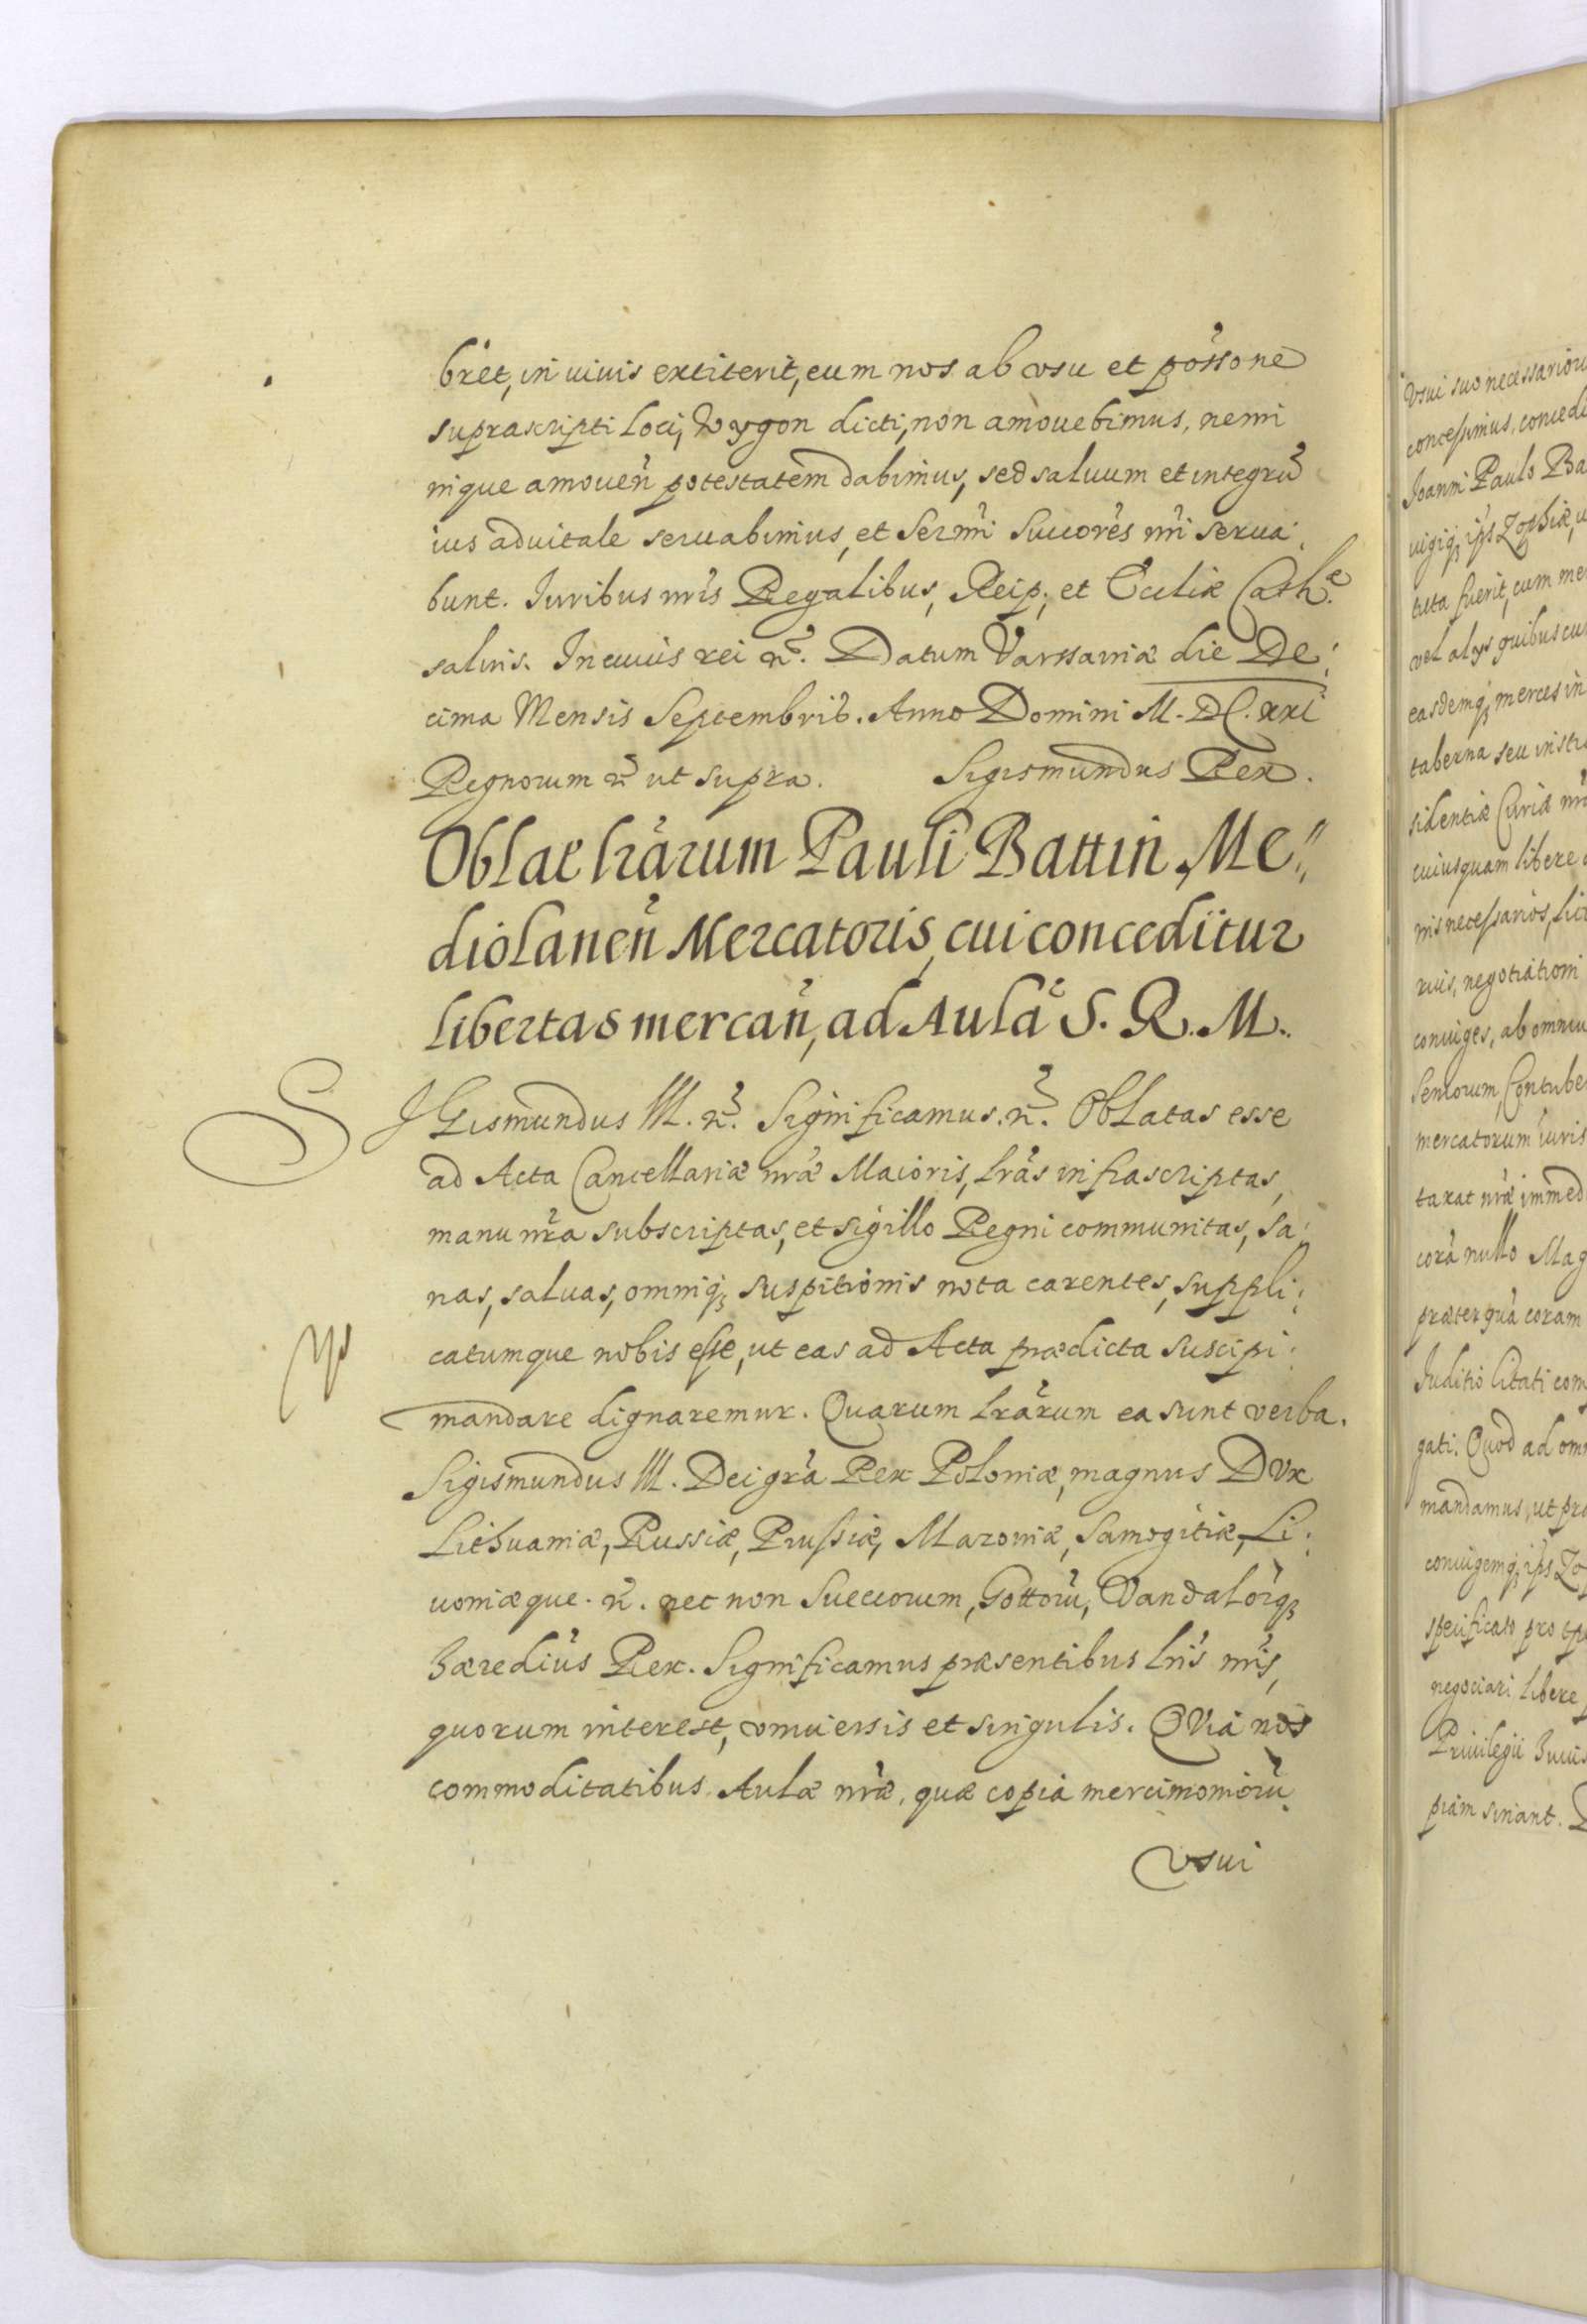 brèt, in uiuis extiterit, eum nos ab vsu et pòssone
suprascripti loci, Wygon dicti, non amouebimus, nemi
nique amouen̉ potestatem dabimus, sed saluum et integrũ
ius aduitale seruabimus, et Sermi̊ Succorès nr̃i serua:
bunt. Iuribus nr̃is Regalibus, Reip: et Eccliæ Cath:ᵉ
saluis. In cuius rei &c̃. Datum Varssauiæ die De:
cima Mensis Septembris. Anno Domini M. DC. xxi
Regnorum &c̃ ut supra. Sigismundus Rex.
Oblae lr̃arum Pauli Battin Me„
diolanen̉ Mercatoris, cui conceditur
libertas mercan̉, ad Aulã S. R. M.
SIGismundus III. &c̃. Significamus. &c̃. Oblatas esse
ad Acta Cancellariæ nr̃æ Maioris, lr̃as infrascriptas,
manu nr̃a subscriptas, et sigillo Regni communitas, sa:
nas, saluas, omniq; suspitionis nota carentes, suppli:
catumque nobis esse, ut eas ad Acta prædicta suscipi:
mandare dignaremur. Quarum lr̃arum ea sunt verba.
Sigismundus III. Dei gr̃a Rex Poloniæ, magnus Dvx
Lithuaniæ, Russiæ, Prussiæ, Mazouiæ, Samogitiæ, Li:
uoniæque. &c̃. nec non Suecorum, Gottorũ, Vandalorq;
hæredius Rex. Significamus præsentibus lr̃is nr̃is,
quorum interest, vniuersis et singulis. QVia nos
commoditatibus Aulæ nr̃æ, quæ copia mercimoniorũ
vsui
vsui suo necessarioru
concessimus, concedi
Joanni Paulo Ba
uigiq; ips Zophiæ, u
tuta fuerit, cum me
vel alys quibuscu
easdemq; merces in
taberna seu instr
sidentiæ Curiæ nr̃
cuiusquam libere
nis necessarios, lic
ruis, negotiationi
coniuges, ab omniu
Seniorum, Contube
mercatorum iuris
taxat nr̃æ immed
corã nullo Mag
præterquã coram
Juditio Citati com
gati. Quod ad omn
mandamus, ut pro
coniugemq; ips Zo
specificato pro tp
negociari libere
Priuilegii huius
piam sinant. D